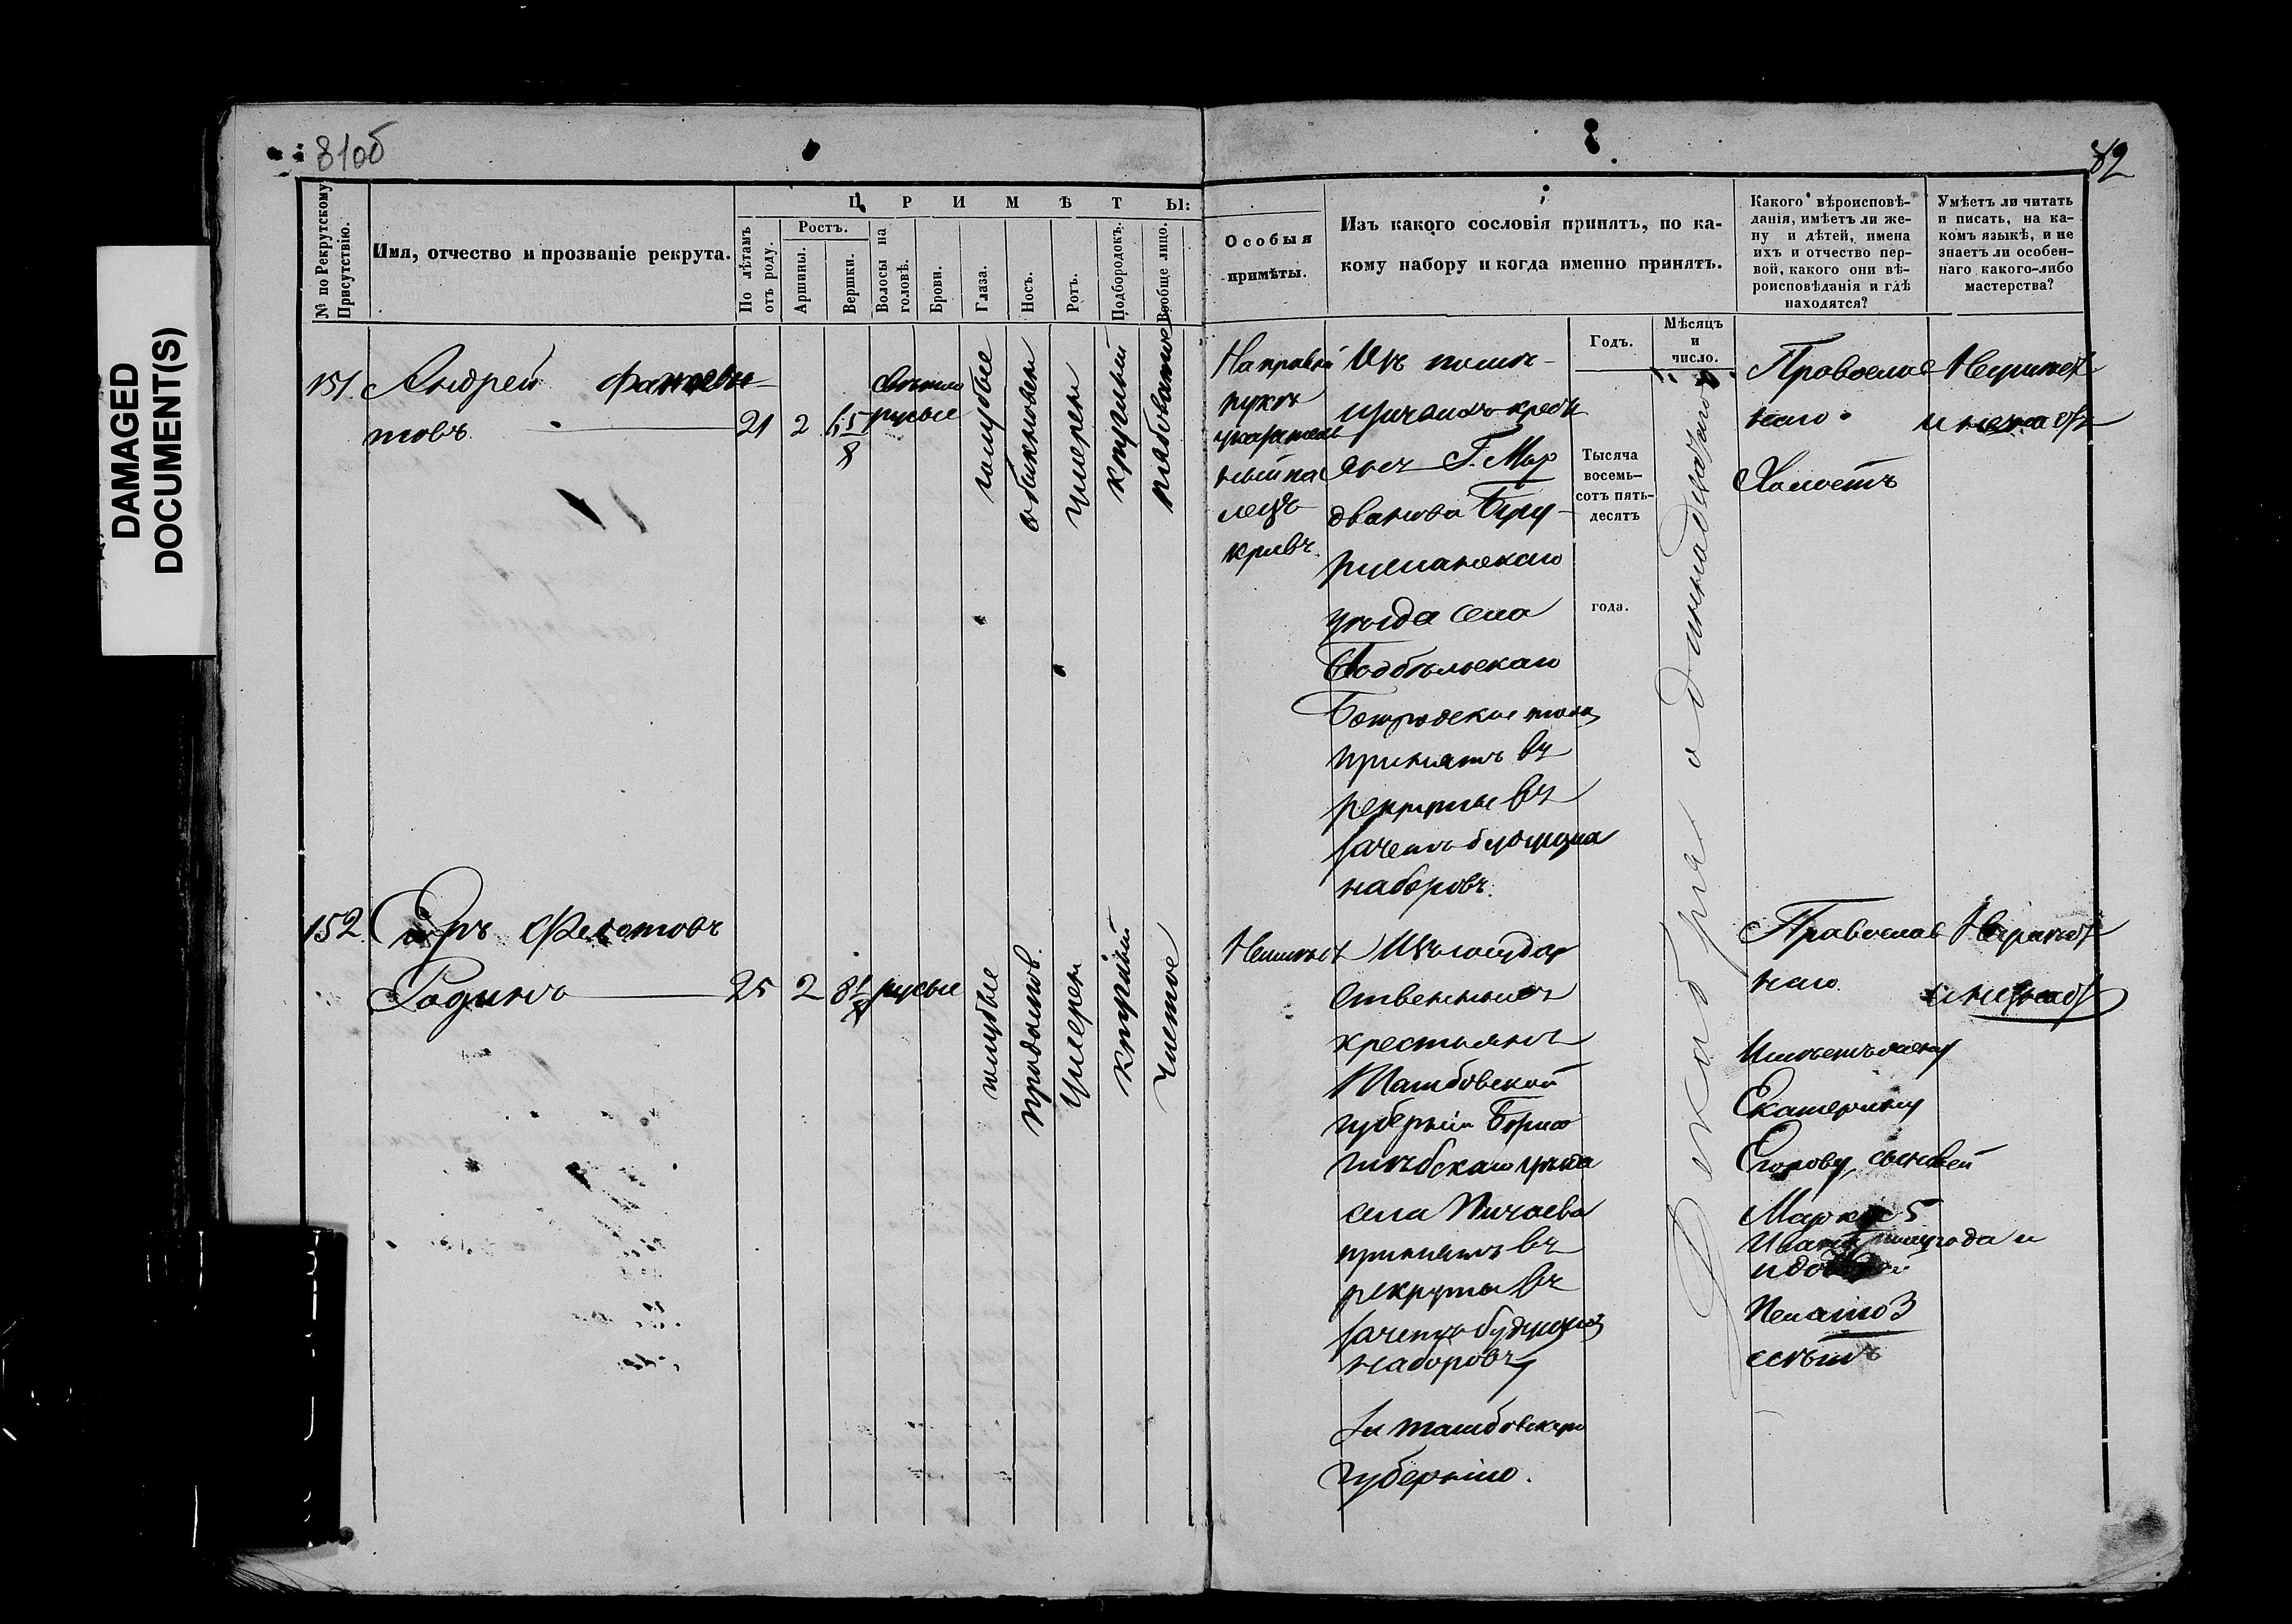 DAMAGED
DOCUMENT(S)
81об
82
№ по Рекрутскому
Присутствію.
Имя, отчество и прозваніе рекрута.
П Р И М Ѣ Т Ы:
По лѣтамъ
отъ роду.
Ростъ.
Аршины.
Вершки.
Волосы на
головѣ.
Брови.
Глаза.
Носъ.
Ротъ.
Подбородокъ.
Вообще лицо.
Особыя
примѣты.
Изъ какого сословія принятъ, по ка-
кому набору и когда именно принятъ.
Годъ.
Мѣсяцъ
и
число.
Какого вѣроисповѣ-
данія, имѣетъ ли же-
ну и дѣтей, имена
ихъ и отчество пер-
вой, какого они вѣ-
роисповѣданія и гдѣ
находятся?
Умѣетъ ли читать
и писать, на ка-
комъ языкѣ, и не
знаетъ ли особен-
наго какого-либо
мастерства?
151. Андрей
товъ 21 2
свѣтло
русые
голубые
обыкновен
умерен
круглый
рябоватое
На правой
руки
указатель
ный па
лецъ
кривъ.
Изъ помѣ-
щичьихъ кресть
янъ Г. Мор
двинова Бугу-
русланскаго
уѣзда села
Подбѣльскаго
Богородское тожъ
принятъ въ
рекруты въ
зачетъ будущихъ
наборовъ.
Тысяча
восемь-
сотъ пять-
десятъ
года.
Декабря одиннадцатаго
Православ
наго
Холостъ
Неграмот
и незнает
152. Федотовъ
Родинъ 25 2 русые
голубые
продолгов.
умерен
круглый
чистое
Неимѣет
Изъ государ
ственныхъ
крестьянъ
Тамбовской
губерніи Борисо
глѣбскаго уѣзда
села Пичаева
принятъ въ
рекруты въ
зачетъ будущихъ
наборовъ
за тамбовскую
губернію.
Православ
наго
Имѣетъ жену
Екатерину
Егорову, сыновей
Марка 5
Ивана полугода и
3
Неграмот
и незнает